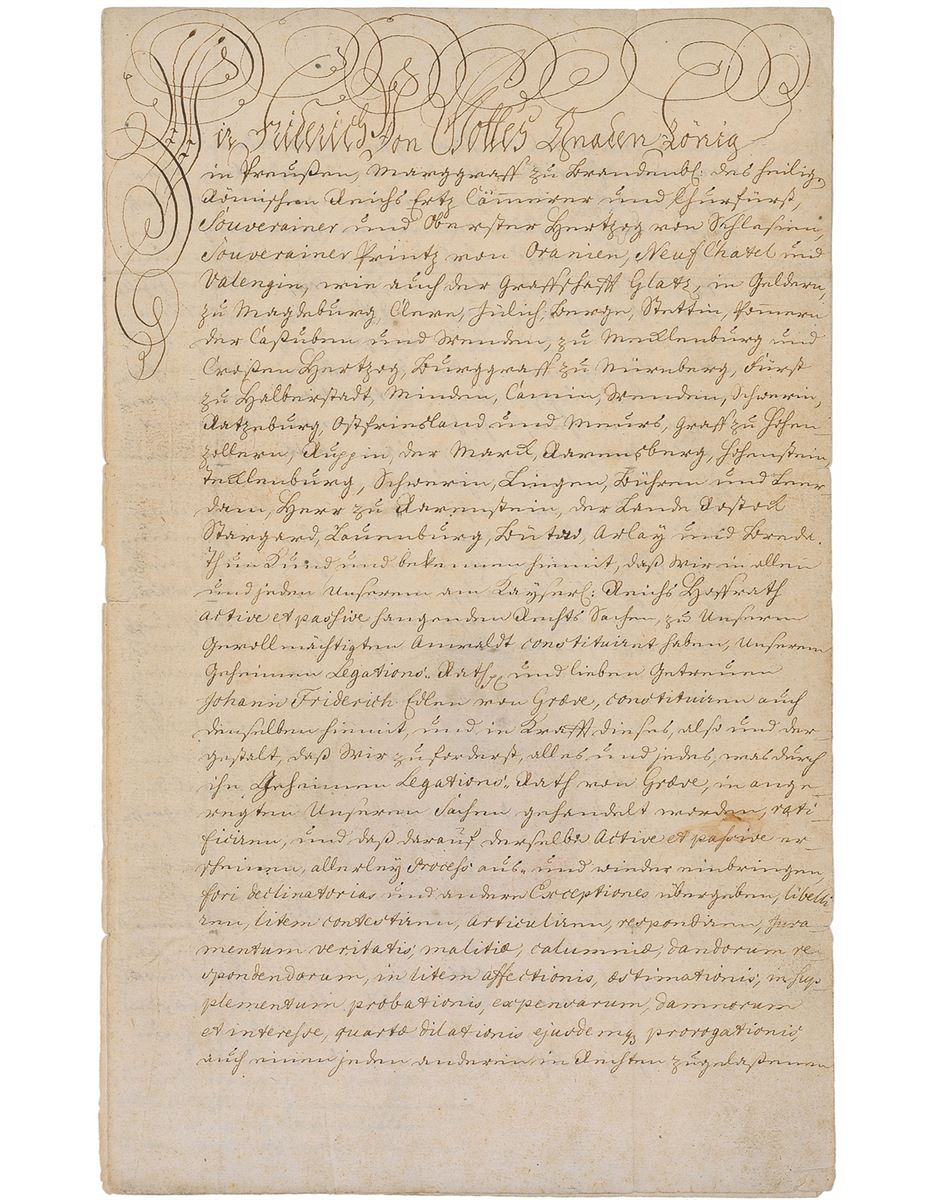 Wir Friderich Von Gottes Gnaden König
in Preußen, Marggraff zu Brandenb: des heilig:
Römischen Reichs Ertz Cämmerer und Churfürst,
Souverainer und Oberster Hertzog von Schlesien,
Souverainer Printz von Oranien, Neuf Chatel und
Valengin, wie auch der Graffschafft Glatz, in Geldern,
zu Magdeburg, Cleve, Jülich, Berge, Stettin, Pommern
der Caßuben und Wenden, zu Mecklenburg und
Croßen Hertzog, Burggraff zu Nürnberg, Fürst
zu Halberstadt, Minden, Camin, Wenden, Schwerin,
Ratzeburg, Ostfriesland und Meurs, Graff zu Hohen-
zollern, Ruppin, der Marck, Ravensberg, Hohenstein,
Tecklenburg, Schwerin, Lingen, Bühren und Leer-
dam, Herr zu Ravenstein, der Lande Rostock
Stargard, Lauenburg, Bütow, Arlay und Breda.
Thun Kund und bekennen hiemit, daß Wir in allen
und jeden Unseren am Kayserl: Reichs Hoffrath
active et passive hangenden Rechts Sachen, zu Unserm
Gevollmächtigten Anwaldt constituiret haben, Unserem
Geheimen Legations-Rath und lieben Getreuen
Johann Friderich Edlen von Græve, constituiren auch
denselben hiemit, und in Krafft dieses, also und der-
gestalt, daß Wir zuforderst, alles und jedes, was durch
ihn Geheimen Legations-Rath von Græve, in ange-
regten Unseren Sachen gehandelt worden, rati-
ficiren, und daß darauf derselbe Active et passive er-
scheinen, allerley Process aus- und wieder einbringen,
fori declinatorias und andere Exceptiones übergeben, libelli-
ren, litem contestiren, articuliren, respondiren, Jura-
mentum veritatis, malitiæ, calumniæ, dandorum re-
spondendorum, in litem affectionis, æstimationis, in sup-
plementum probationis, expensarum, damnorum
et interesse, quartæ dilationis ejusdemq, prorogationis,
auch einen jeden anderen in Rechten zugelaßenen